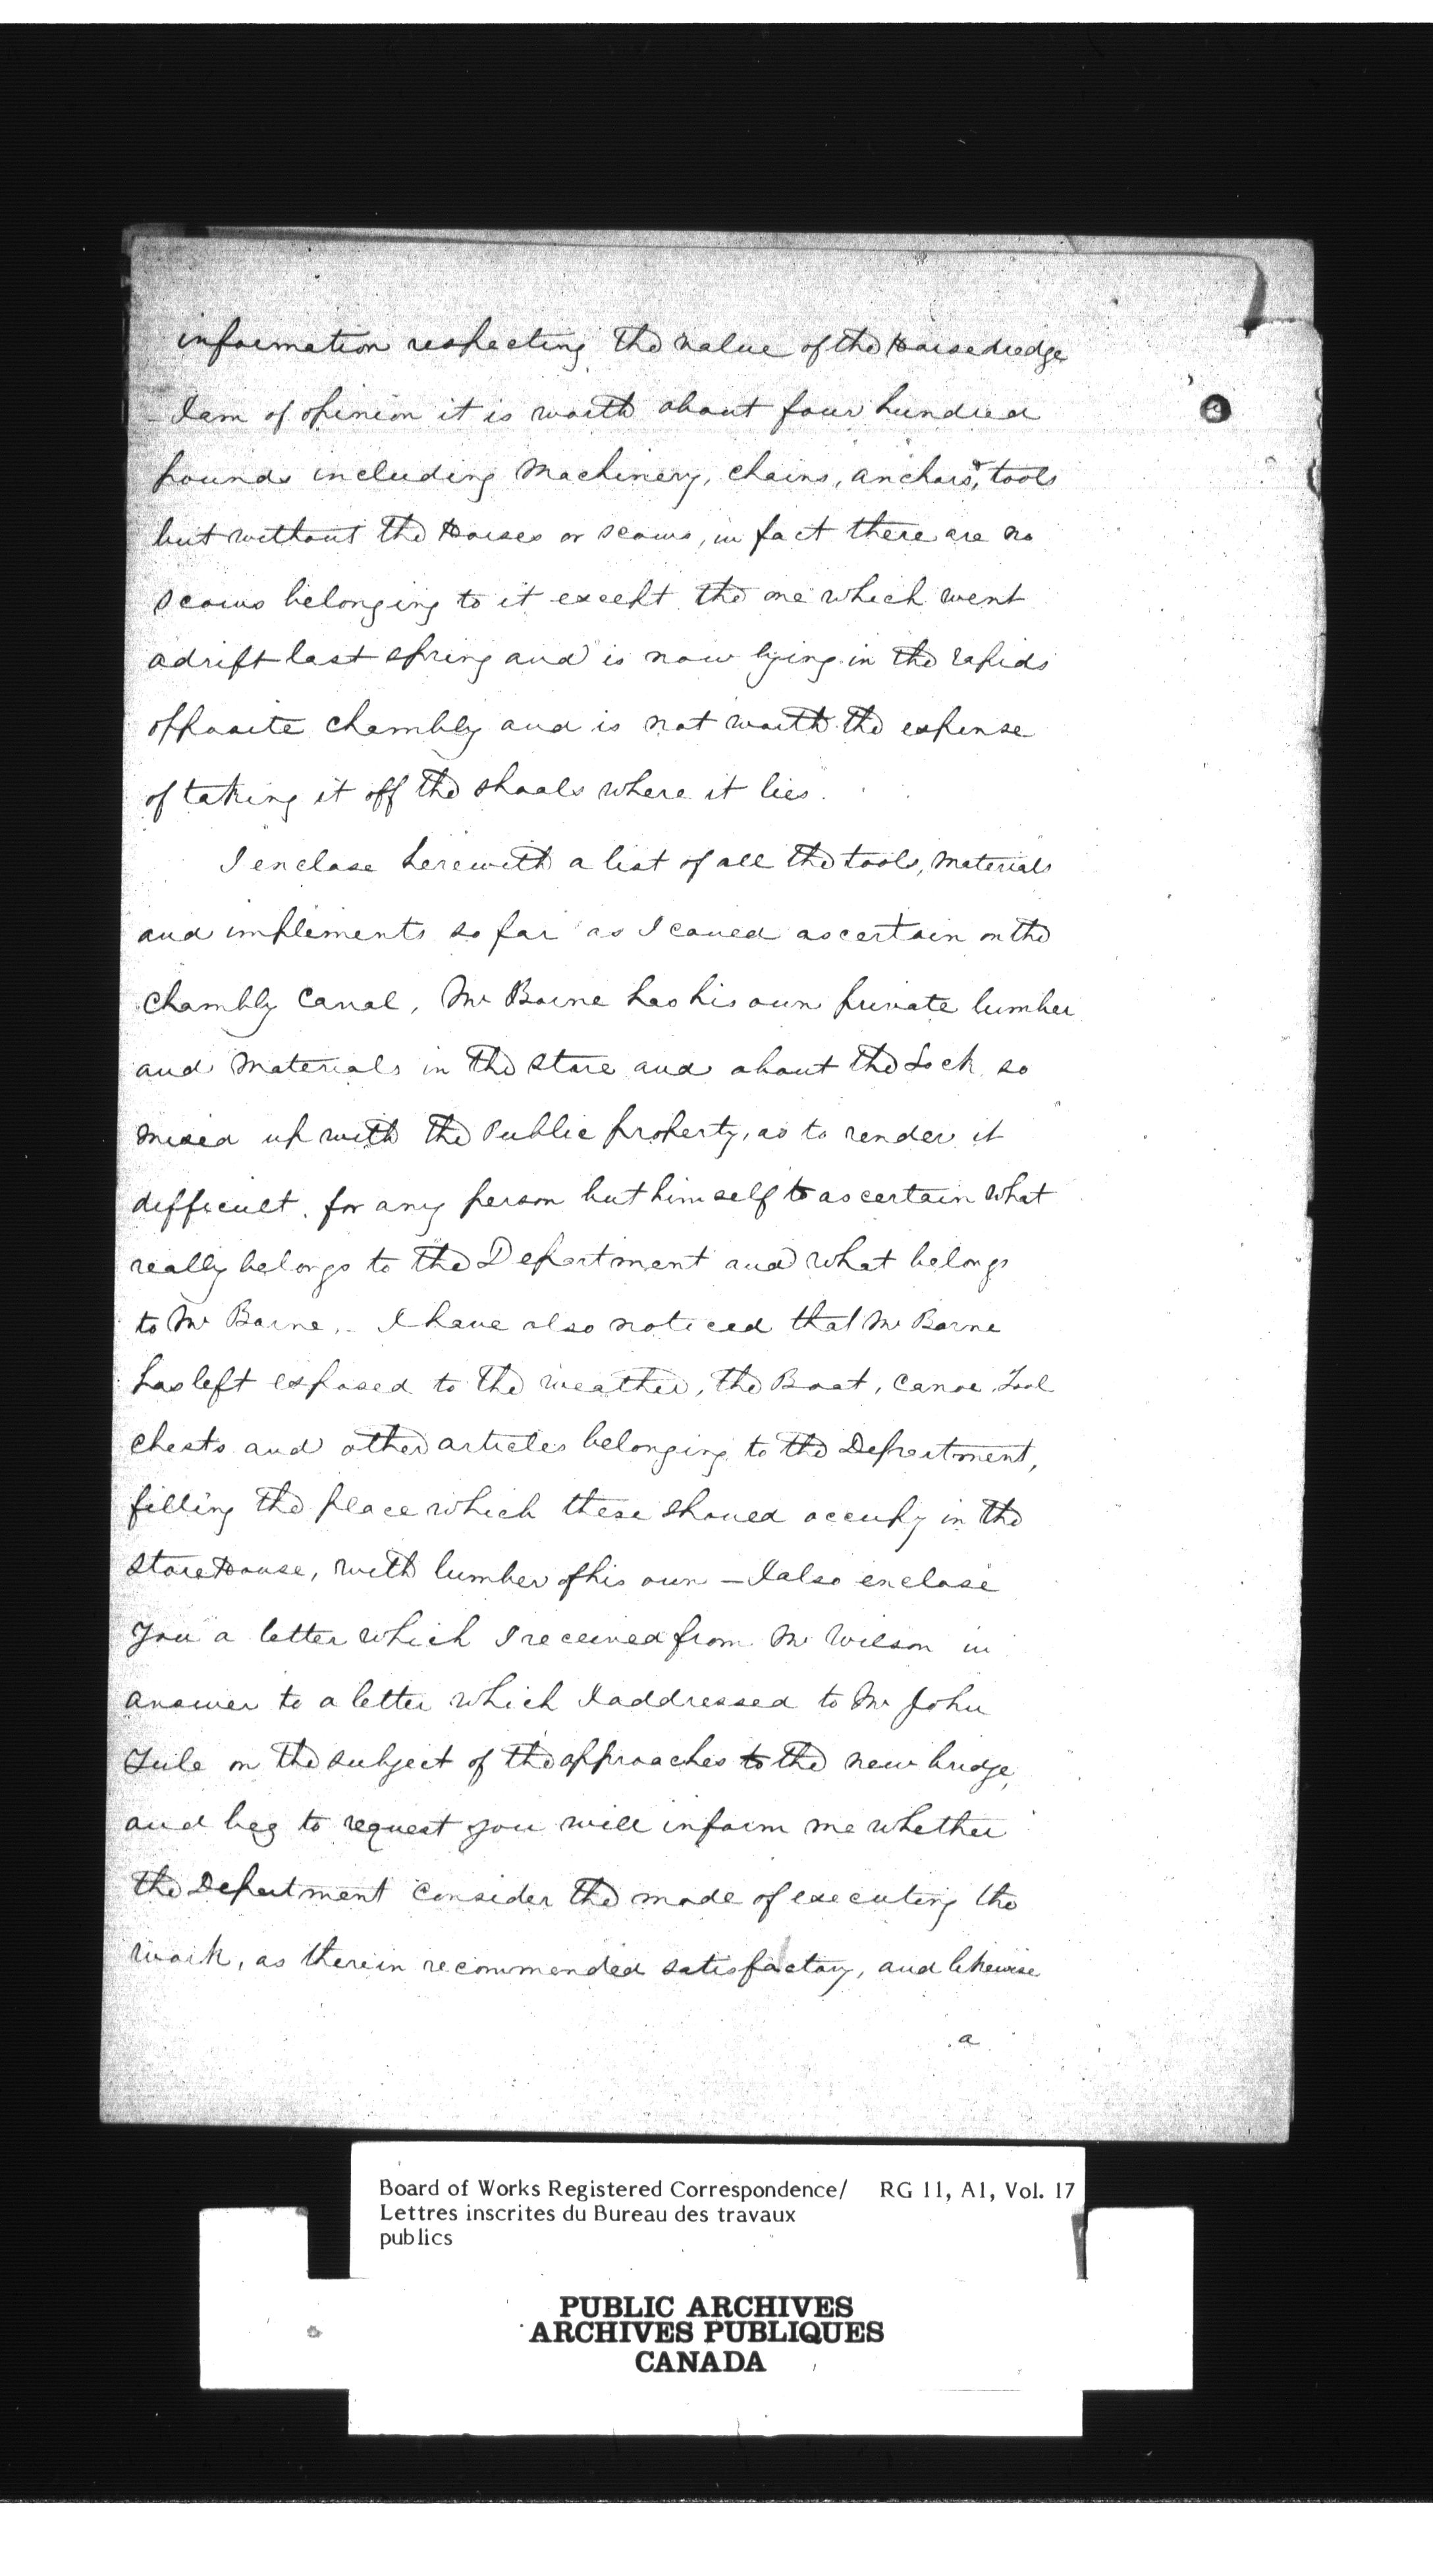 information respecting the value of the Horse dredge
- I am of opinion it is worth about four hundred
pounds including Machinery, chains, anchors, & tools
but without the Horses or scows, in fact there are no
scows belonging to it except the one which went
adrift last spring and is now lying in the rapids
opposite Chambly and is not worth the expense
of taking it off the shoals where it lies.
I enclose herewith a list of all the tools, materials
and implements so far as I could ascertain on the
Chambly Canal, Mr Borne has his own private lumber
and materials in the store and about the Lock so
mixed up with the Public property, as to render it
difficult, for any person but himself to ascertain what
really belongs to the Department and what belongs
to Mr Borne. - I have also noticed that Mr Borne
has left exposed to the weather, the Boat, Canoe, Tool
chests and other articles belonging to the Department,
filling the place which these should occupy in the
Store House, with lumber of his own - I also enclose
you a letter which I received from Mr Wilson in
answer to a letter which I addressed to Mr John
Yule on the subject of the approaches to the new bridge,
and beg to request you will inform me whether
the Department consider the mode of executing the
work, as therein recommended satisfactory, and likewise
a
Board of Works Registered Correspondence/ RG 11, A1, Vol. 17
Lettres inscrites du Bureau des travaux
publics
PUBLIC ARCHIVES
ARCHIVES PUBLIQUES
CANADA